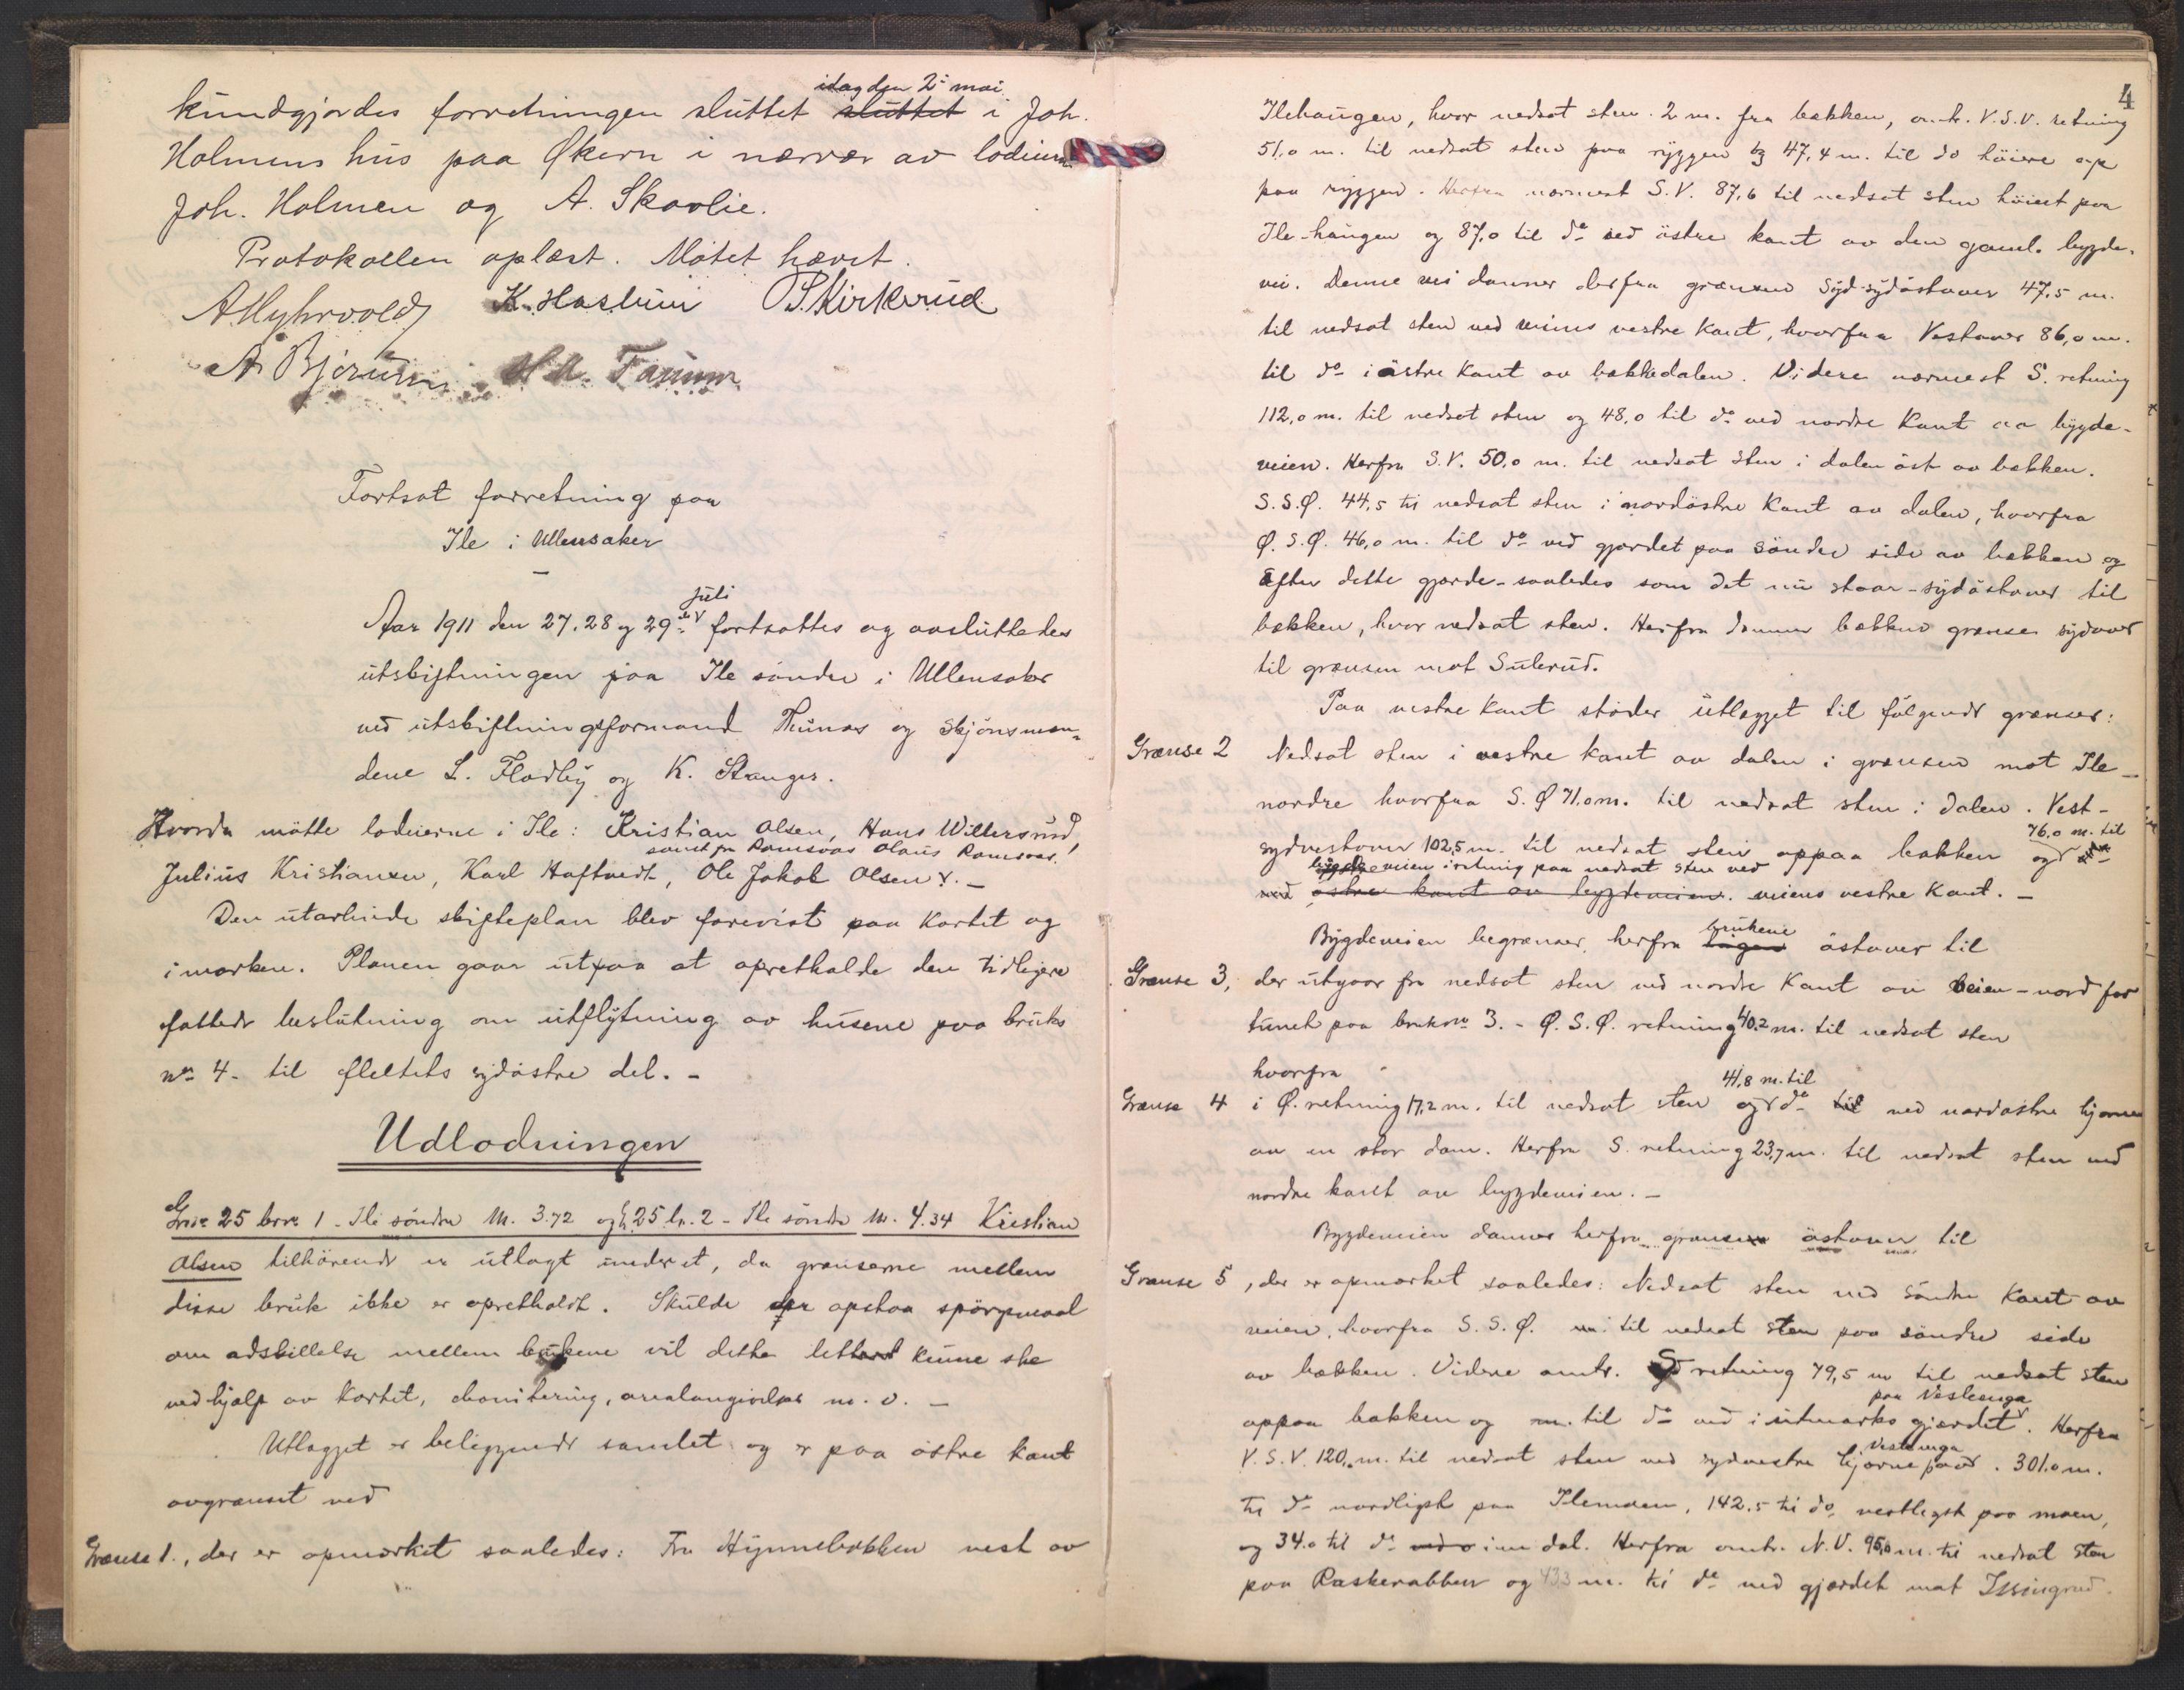 idag den 2. mai
kundgjordes forretningen sluttet sluttet i Joh.
Holmens hus paa Økern i nærvær av lodeierne
Joh. Holmen og A. Skovlie.
Protokollen oplæst. Møtet hævet.
A. Myhrvold K. Haslum O. S. Kirkerud
A. Bjerum H. A. Farum
Fortsat forretning paa
Ile i Ullensaker
juli
Aar 1911 den 27. 28 og 29de fortsattes og avsluttedes
utskiftningen paa Ile søndre i Ullensaker
ved utskiftningsformand Thunæs og skjønsmæn-
dene L. Flodby og K. Stanger.
Hvorda møtte lodeierne i Ile: Kristian Olsen, Hans Willersrud,
samt fra Ramsaas Olaus Ramsaas.
Julius Kristiansen, Karl Haftvedt, Ole Jakob Olsen. —
Den utarbeide skifteplan blev forevist paa kartet og
i marken. Planen gaar ut paa at opretholde den tidligere
fattede beslutning om utflytning av husene paa bruks
no 4. til feltets sydøstre del. -
Udlodningen
Gno 25 brno 1 - Ile søndre M. 3.72 og g. 25 br. 2 - Ile søndre M. 4.34 Kristian
Olsen tilhørende er utlagt underet, da grænserne mellem
disse bruk ikke er opretholdt. Skulde der opstaa spørgsmaal
om adskillelse mellem brukene vil dette lettest kunne ske
ved hjælp av kartet, bonitering, arealangivelser m. v. —
Utlægget er beliggende samlet og er paa østre kant
avgrænset ved
Grænse 1., der er opmerket saaledes: Fra Hynnebækken vest av
4
Ilehaugen, hvor nedsat sten 2 m. fra bækken, omtr. V.S.V. retning
51,0 m. til nedsat sten paa ryggen og 47,4 m. til do høiere op
paa ryggen. Herfra nærmest S.V. 87,6 til nedsat sten høiest paa
Ile-haugen og 87,0 til do ved østre kant av den gamle bygde-
vei. Denne vei danner derfra grænsen syd-sydøstover 47,5 m.
til nedsat sten ved veiens vestre kant, hvorfra Vestover 86,0 m.
til do i østre kant av bækkedalen. Videre nærmest S. retning
112,0 m. til nedsat sten og 48,0 til do ved nordre kant av bygde-
veien. Herfra S.V. 50,0 m. til nedsat sten i dalen øst av bækken.
S.S.Ø. 44,5 til nedsat sten i nordøstre kant av dalen, hvorfra
Ø.S.Ø. 46,0 m. til do ved gjærdet paa søndre side av bækken og
efter dette gjærde - saaledes som det nu staar - sydøstover til
bækken, hvor nedsat sten. Herfra danner bækken grænse sydover
til grænsen mot Sulerud.
Paa vestre kant støder utlægget til følgende grænser:
Grænse 2 Nedsat sten i vestre kant av dalen i grænsen mot Ile
nordre hvorfra S.Ø 71,0 m. til nedsat sten i dalen. Vest-
76,0 m. til
sydvestover 102,5 m. til nedsat sten oppaa bakken og do
bygdeveien i retning paa nedsat sten ved
ved østre kant av bygdeveien. veiens vestre kant. —
brukene
Bygdeveien begrænser herfra østover til
Grænse 3, der utgaar fra nedsat sten ved nordre kant av veien - nord for
tunet paa bruksno 3. - Ø.S.Ø. retning 40,2 m. til nedsat sten
hvorfra
41,8 m. til
Grænse 4 i Ø. retning 17,2 m. til nedsat sten og do til ved nordøstre hjørne
av en stor dam. Herfra S. retning 23,7 m. til nedsat sten ved
nordre kant av bygdeveien. —
Bygdeveien danner herfra grænsen østover til
Grænse 5, der er opmerket saaledes: Nedsat sten ved søndre kant av
veien, hvorfra S.S.Ø. m. til nedsat sten paa søndre side
av bækken. Videre omtr. S retning 79,5 m til nedsat sten
paa Veslenga
oppaa bakken og m. til do ved i utmarks gjærdet. Herfra
Veslenga
V.S.V. 120,0 m. til nedsat sten ved sydvestre hjørne paa. 301,0 m.
til do nordligst paa Ilemoen, 142.5 til do vestligst paa moen,
og 34.0 til do i en dal. Herfra omtr. N.V. 95,0 m. til nedsat sten
paa Raskerabben og 433 m. til do ved gjærdet mot Issingrud.